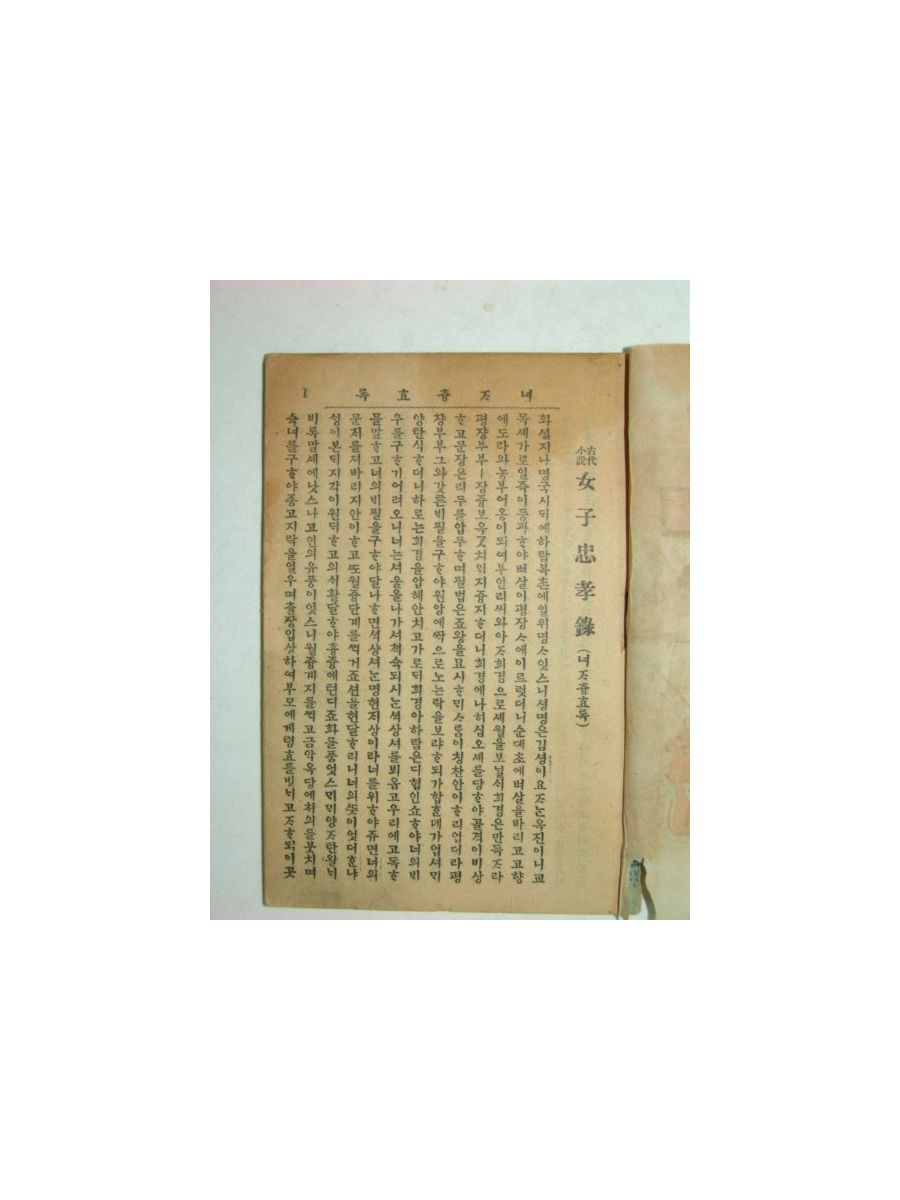 녀ᄌᆞ츙효록 1
古代小說 女子忠孝錄 (녀ᄌᆞ츙효록)
화셜지나명국시ᄃᆡ에하람복초에일위명ᄉᆞ잇스니셩명은김셩이요ᄌᆞᄂᆞᆫ옥진이니교
목셰가로일즉이등과ᄒᆞ야벼살이평쟝ᄉᆞ에이르럿더니순뎨초에벼살을바리고고향
에도라와농부어옹이되여부인리씨와아ᄌᆞ희경으로셰월을보ᄂᆡᆯᄉᆡ희경은만득ᄌᆞ라
평쟝부부ㅣ쟝즁보옥ᄀᆞᆺ치ᄋᆡ지즁지ᄒᆞ더니희경에나히십오셰를당ᄒᆞ야골격이비상
ᄒᆞ고문장은리두를압두ᄒᆞ며필법은죠왕을묘시ᄒᆞᄆᆡᄉᆞᄅᆞᆷ이칭찬안이ᄒᆞ리업더라평
쟝부부그와갓튼ᄇᆡ필을구ᄒᆞ야원앙에짝으로노ᄂᆞᆫ락을보랴ᄒᆞ되가합ᄒᆞᆫ데가업셔ᄆᆡ
양탄식ᄒᆞ더니하로ᄂᆞᆫ희경을압헤안치고가로ᄃᆡ희경아하람은디협인쇼ᄒᆞ야너의ᄇᆡ
우를구ᄒᆞ기어려오니너ᄂᆞᆫ셔울올나가셔쳐슉되시ᄂᆞᆫ셕상셔를뵈옵고우리에고독ᄒᆞ
믈말ᄒᆞ고너의ᄇᆡ필을구ᄒᆞ야달나ᄒᆞ면셕샹셔ᄂᆞᆫ명현ᄌᆡ상이라너를위ᄒᆞ야쥬면너의
문지를져바리지안이ᄒᆞ고ᄯᅩ월즁단계를ᄭᅥᆨ거죠션을현달ᄒᆞ리니너의ᄯᅳᆺ이엇더ᄒᆞ냐
ᄉᆡᆼ이본ᄃᆡ지각이원ᄃᆡᄒᆞ고의ᄉᆡ활달ᄒᆞ야흉즁에텬디죠화를품엇스ᄆᆡᄆᆡ양ᄌᆞ탄왈ᄂᆡ
비록말셰에낫스나고인의유풍이잇스니월즁계지를ᄭᅥᆨ고금악옥당에쳐의를붓치며
슉녀를구ᄒᆞ야종고지락을일우며츌쟝입상하여부모에게령효를빗ᄂᆡ고ᄌᆞᄒᆞ되이곳